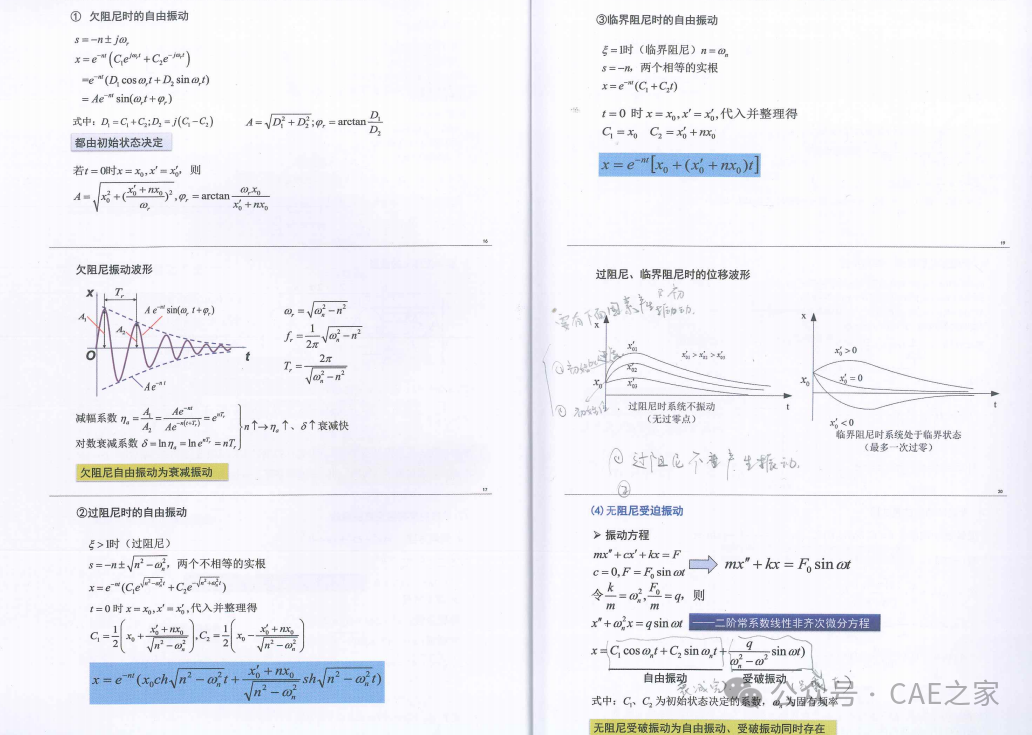 ① 欠阻尼时的自由振动
s = −n ± jωᵣ
x = e^{−nt}(C₁e^{jωᵣt} + C₂e^{−jωᵣt})
=e^{−nt}(D₁ cos ωᵣt + D₂ sin ωᵣt)
= Ae^{−nt} sin(ωᵣt + φᵣ)
式中：D₁ = C₁ + C₂; D₂ = j(C₁ − C₂) A = √(D₁² + D₂²); φᵣ = arctan D₁/D₂
都由初始状态决定
若t = 0时x = x₀, x′ = x′₀，则
A = √(x₀² + ((x′₀ + nx₀)/ωᵣ)²), φᵣ = arctan ωᵣx₀/(x′₀ + nx₀)
16
欠阻尼振动波形
x
Tᵣ
A₁
A₂
A e^{−nt} sin(ωᵣ t+φᵣ)
O
t
A e^{−n t}
ωᵣ = √(ωₙ² − n²)
fᵣ = 1/2π √(ωₙ² − n²)
Tᵣ = 2π/√(ωₙ² − n²)
减幅系数 ηₐ = A₁/A₂ = Ae^{−nt}/Ae^{−n(t+Tᵣ)} = e^{nTᵣ}
对数衰减系数 δ = ln ηₐ = ln e^{nTᵣ} = nTᵣ
n ↑→ ηₐ ↑、δ ↑ 衰减快
欠阻尼自由振动为衰减振动
17
②过阻尼时的自由振动
ξ > 1时（过阻尼）
s = −n ± √(n² − ωₙ²)，两个不相等的实根
x = e^{−nt}(C₁e^{√(n²−ωₙ²)t} + C₂e^{−√(n²+ωₙ²)t})
t = 0 时 x = x₀, x′ = x′₀,代入并整理得
C₁ = 1/2(x₀ + (x′₀ + nx₀)/√(n² − ωₙ²)), C₂ = 1/2(x₀ − (x′₀ + nx₀)/√(n² − ωₙ²))
x = e^{−nt}(x₀ch√(n² − ωₙ²)t + (x′₀ + nx₀)/√(n² − ωₙ²) sh√(n² − ωₙ²)t)
③临界阻尼时的自由振动
ξ = 1时（临界阻尼）n = ωₙ
s = −n，两个相等的实根
x = e^{−nt}(C₁ + C₂t)
t = 0 时 x = x₀, x′ = x′₀,代入并整理得
C₁ = x₀ C₂ = x′₀ + nx₀
x = e^{−nt}[x₀ + (x′₀ + nx₀)t]
过阻尼、临界阻尼时的位移波形
x
x′₀₁
x′₀₂
x′₀₃
x′₀₁ > x′₀₂ > x′₀₃
x₀
t
过阻尼时系统不振动
（无过零点）
x
x′₀ > 0
x′₀ = 0
x₀
t
x′₀ < 0
临界阻尼时系统处于临界状态
（最多一次过零）
① 过阻尼不会产生振动.
②
20
(4) 无阻尼受迫振动
➢ 振动方程
mx″ + cx′ + kx = F
c = 0, F = F₀ sin ωt
mx″ + kx = F₀ sin ωt
令 k/m = ωₙ², F₀/m = q，则
x″ + ωₙ²x = q sin ωt ——二阶常系数线性非齐次微分方程
x = C₁ cos ωₙt + C₂ sin ωₙt + q/(ωₙ² − ω²) sin ωt)
自由振动 受破振动
式中：C₁、C₂ 为初始状态决定的系数，ωₙ为固有频率
无阻尼受破振动为自由振动、受破振动同时存在
公众号 · CAE之家